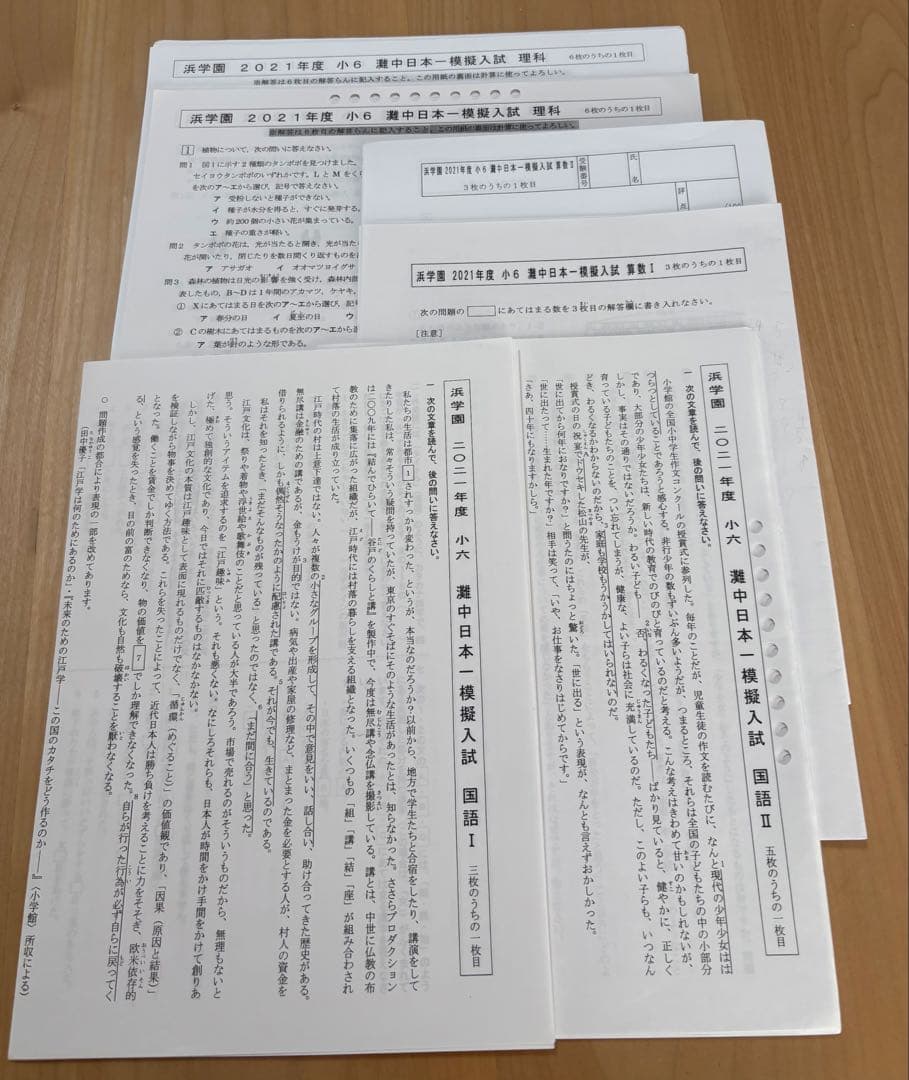 浜学園 2021年度 小6 灘中日本一模擬入試 理科
6枚のうちの1枚目
※解答は6枚目の解答らんに記入すること。この用紙の裏面は計算に使ってよろしい。
浜学園 2021年度 小6 灘中日本一模擬入試 理科
6枚のうちの1枚目
※解答は6枚目の解答らんに記入すること。この用紙の裏面は計算に使ってよろしい。
1 植物について、次の問いに答えなさい。
問1 図1に示す2種類のタンポポを見つけました。
セイヨウタンポポのいずれかです。LとMをくら
を次のア~エから選び、記号で答えなさい。
ア 受粉しないと種子ができない。
イ 種子が水分を得ると、すぐに発芽する。
ウ 約200個の小さい花が集まっている。
エ 種子の重さが軽い。
問2 タンポポの花は、光が当たると開き、光が当たら
花が開いたり、閉じたりを数日間くり返すものを
ア アサガオ イ オオマツヨイグサ
問3 森林の植物は日光の影響を強く受け、森林内部
表したもの、B~Dは1年間のアカマツ、ケヤキ、
① Xにあてはまる日を次のア~エから選び、記号
ア 春分の日 イ 夏至の日 ウ
② Cの樹木にあてはまるものを次のア~エから選
ア 葉が針のような形である。
浜学園 2021年度 小6 灘中日本一模擬入試 算数Ⅱ
3枚のうちの1枚目
受験番号
氏名
評点
/100
浜学園 2021年度 小6 灘中日本一模擬入試 算数Ⅰ
3枚のうちの1枚目
次の問題の□にあてはまる数を3枚目の解答欄に書き入れなさい。
[注意]
浜学園 二〇二一年度 小六 灘中日本一模擬入試 国語Ⅱ
五枚のうちの一枚目
一 次の文章を読んで、後の問いに答えなさい。
小学館の全国小中学生作文コンクールの授賞式に参列した。毎年のことだが、児童生徒の作文を読むたびに、なんと現代の少年少女はは
つらつとしていることであろうと感心する。非行少年の数もずいぶん多いようだが、つまるところ、それらは全国の子どもたちの中の小部分
であり、大部分の少年少女たちは、新しい時代の教育でのびのびと育っているのだと考える。こんな考えはきわめて甘いのかもしれないが、
しかし、事実はその通りではないだろうか。わるい子ども――否、わるくなった子どもたち――ばかり見ていると、健やかに、正しく
育っている子どもたちのことを、つい忘れてしまうが、健康な、よい子らは社会に充満しているのだ。ただし、このよい子らも、いつなん
どき、わるくなるかわからないのだから、家庭も学校もうかうかしてはいられないのだ。
授賞式の日の祝宴でドウセキした松山の先生が、
「世に出てから何年におなりですか?」と問うたのにはちょっと驚いた。「世に出る」という表現が、なんとも言えずおかしかった。
「世に出たって……生まれた年ですか?」相手は笑って、「いや、お仕事をなさりはじめてからです。」
「さあ、四十年にもなりますかしら。」
浜学園 二〇二一年度 小六 灘中日本一模擬入試 国語Ⅰ
三枚のうちの一枚目
一 次の文章を読んで、後の問いに答えなさい。
私たちの生活は都市1されすっかり変わった、というが、本当なのだろうか?以前から、地方で学生たちと合宿をしたり、講演をして
きたりした私は、常々そういう疑問を持っていたが、東京のすぐそばにそのような生活があったとは、知らなかった。ささらプロダクション
は二〇〇九年には『結んでひらいて――谷戸のくらしと講』を製作中で、今度は無尽講や念仏講を撮影している。講とは、中世に仏教の布
教のために集落に広がった組織だが、江戸時代には村落の暮らしを支える組織となった。いくつもの「組」「講」「結」「座」が組み合わされ
て村落の生活が成り立っていた。
江戸時代の村は上意下達ではない。人々が複数の小さなグループを形成して、その中で意見をいい、話し合い、助け合ってきた歴史がある。
無尽講は金融のための講であるが、金もうけが目的ではない。病気や出産や家屋の修理など、まとまった金を必要とする人が、村人の資金を
借りられるように、しかも偶然そうなったかのように配慮された講である。それが今でも、生きているのである。
私はそれを知ったとき、「まだそんなものが残っている」と思ったのではなく、「まだ間に合う」と思った。
江戸文化は、祭りや着物や浮世絵や歌舞伎のことだと思っている人が大半であろう。市場で売れるのがそういうものだから、無理もないと
思う。そういうアイテムを追求するのを「江戸趣味」という。それも悪くない。なにしろそれらも、日本人が時間をかけ手間をかけて創りあ
げた、極めて独創的な文化であり、今日ではそれに匹敵するものはなかなかない。
しかし、江戸文化の本質は江戸趣味として表面に現れるものだけでなく、「循環(めぐること)」の価値観であり、「因果(原因と結果)」
を検証しながら物事を決めてゆく方法である。これらを失ったことによって、近代日本人は勝ち負けを考えることに力をそそぎ、欧米依存的
となった。働くことを賃金でしか判断できなくなり、物の価値を7でしか理解できなくなった。自らが行った行為が必ず自らに戻ってく
る、という感覚を失ったとき、目の前の富のためなら、文化も自然も破壊することを厭わなくなる。
(田中優子「江戸学は何のためにあるのか」・『未来のための江戸学――この国のカタチをどう作るのか――』〈小学館〉所収による)
○ 問題作成の都合により表現の一部を改めてあります。